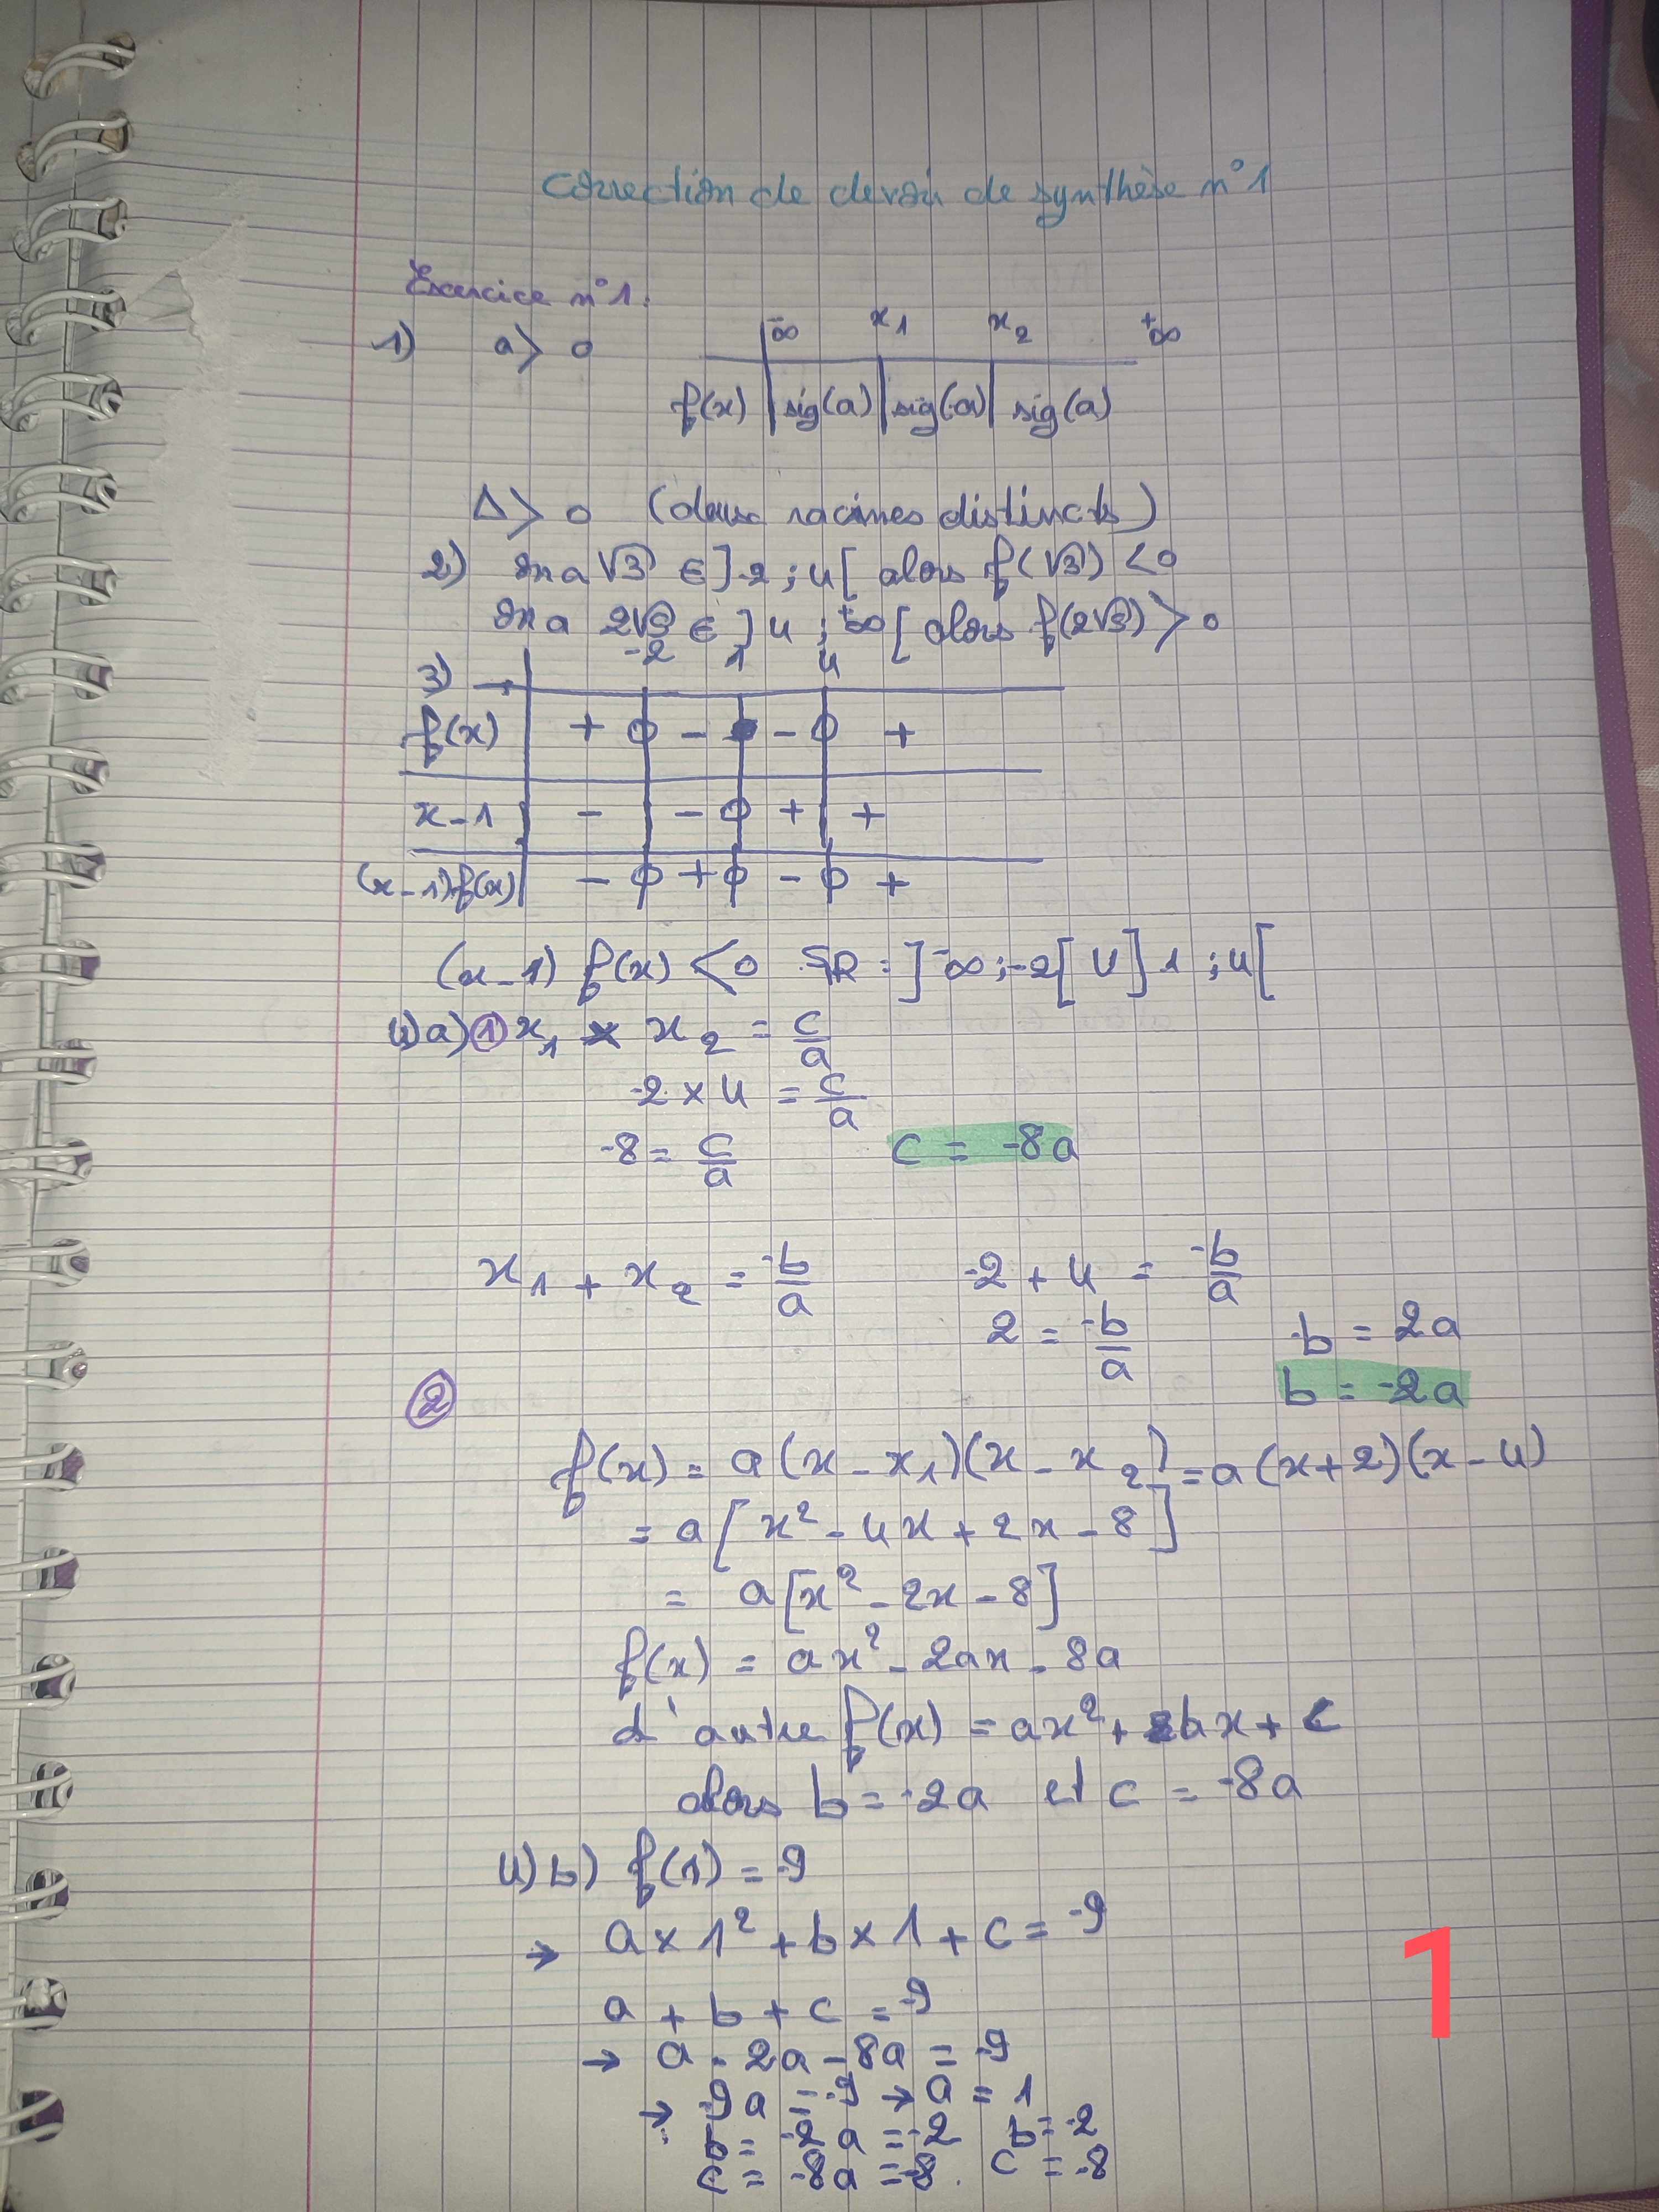 Correction de devoir de synthèse n°1
Exercice n°1.
1) a > 0
-∞ x1 x2 +∞
f(x) sig(a) sig(-a) sig(a)
Δ > 0 (deux racines distincts)
2) On a √3 ∈ ]-2 ; 4[ alors f(√3) < 0
On a 2√3 ∈ ]4 ; +∞[ alors f(2√3) > 0
3) -2 1 4
f(x) + 0 - - 0 +
x - 1 - - 0 + +
(x - 1) f(x) - 0 + 0 - 0 +
(x - 1) f(x) < 0 SR = ]-∞ ; -2[ U ]1 ; 4[
4) a) ① x1 × x2 = c/a
-2 × 4 = c/a
-8 = c/a c = -8a
x1 + x2 = -b/a -2 + 4 = -b/a
2 = -b/a -b = 2a
b = -2a
②
f(x) = a(x - x1)(x - x2) = a(x + 2)(x - 4)
= a[x² - 4x + 2x - 8]
= a[x² - 2x - 8]
f(x) = ax² - 2ax - 8a
d'autre f(x) = ax² + bx + c
alors b = -2a et c = -8a
4) b) f(1) = -9
→ a × 1² + b × 1 + c = -9
a + b + c = -9
→ a - 2a - 8a = -9
→ -9a = -9 → a = 1
b = -2a = -2 b = -2
c = -8a = -8. c = -8
1